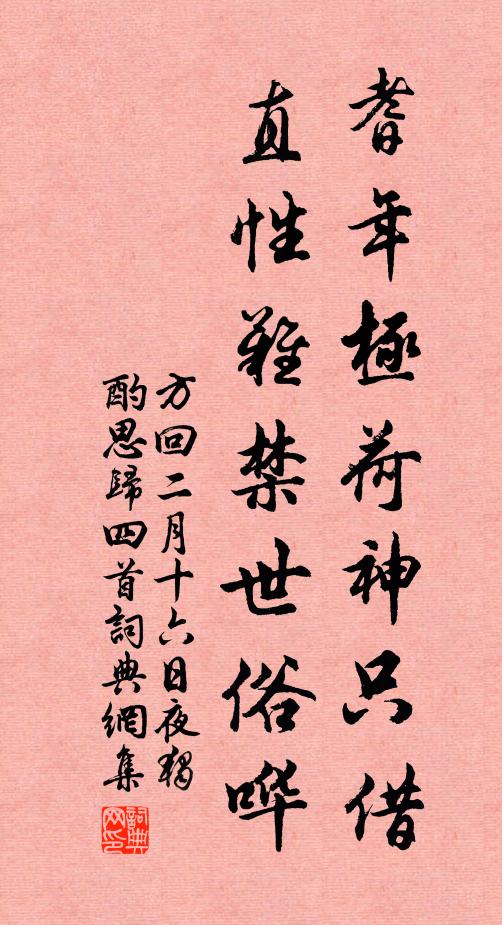 耆年極荷神只借
直性難禁世俗哗
方回二月十六日夜獨
酌思歸四首詞典網集
詞典网印